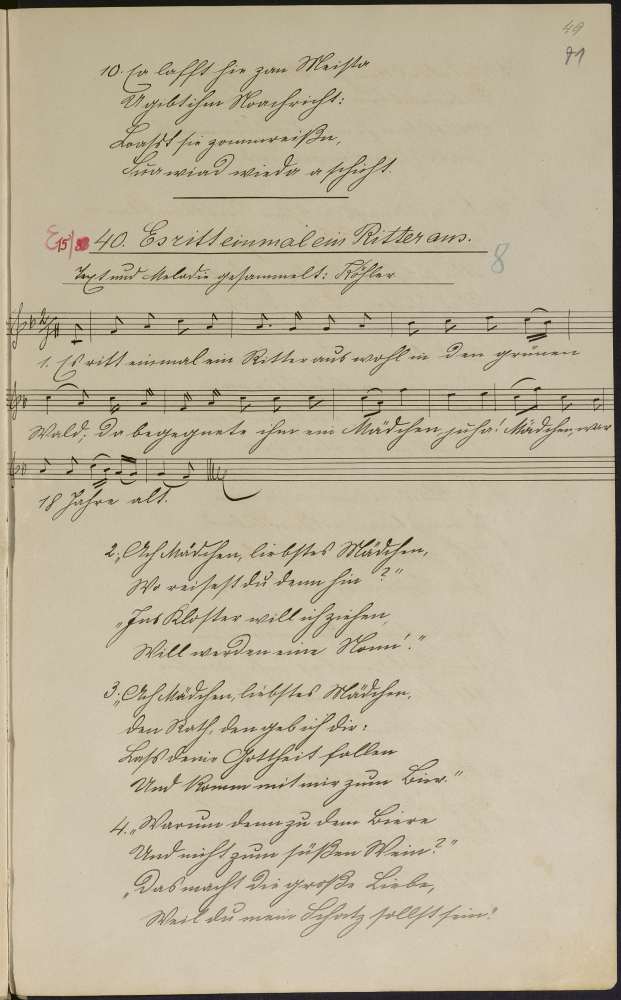 49
71
10. Ea lafft hie zan Meista
Ugebtihm Noachricht:
Loasdt sie zommreißn,
Sua wiad wieda a schicht.
E 15/8 40. Es ritt einmal ein Ritter aus.
8
Text und Melodie gesammelt: Köhler
1. Es ritt einmal ein Ritter aus wohl in den grünen
Wald; Da begegnete ihm ein Mädchen, juha! Mädchen, war
18 Jahre alt.
2. „Ach Mädchen, liebstes Mädchen,
Wo reisest du denn hin?"
„Ins Kloster will ich ziehen,
Will werden eine Nonn'."
3. „Ach Mädchen, liebstes Mädchen,
den Rath, den geb ich dir:
Lass deine Gottheit fallen
Und komm mit mir zum Bier."
4. „Warum denn zu dem Biere
Und nicht zum süßen Wein?"
„Das macht die große Liebe,
Weil du mein Schatz sollst sein!